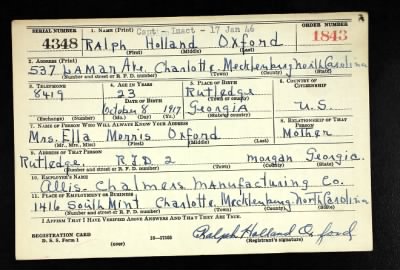 Capt - Inact - 17 Jan 46
SERIAL NUMBER 1. NAME (Print) ORDER NUMBER
4348 Ralph Holland Oxford 1843
(First) (Middle) (Last)
2. ADDRESS (Print)
537 LAMAR Ave. Charlotte, Mecklenburg North Carolina
(Number and street or R. F. D. number) (Town) (County) (State)
3. TELEPHONE 4. AGE IN YEARS 5. PLACE OF BIRTH 6. COUNTRY OF CITIZENSHIP
8419 23 Rutledge
DATE OF BIRTH (Town or county)
October 8 1917 Georgia U.S.
(Exchange) (Number) (Mo.) (Day) (Yr.) (State or country)
7. NAME OF PERSON WHO WILL ALWAYS KNOW YOUR ADDRESS 8. RELATIONSHIP OF THAT PERSON
Mrs. Ella Morris Oxford Mother
(Mr., Mrs., Miss) (First) (Middle) (Last)
9. ADDRESS OF THAT PERSON
Rutledge R.F.D. 2 Morgan Georgia.
(Number and street or R. F. D. number) (Town) (County) (State)
10. EMPLOYER'S NAME
Allis-Chalmers Manufacturing Co.
11. PLACE OF EMPLOYMENT OR BUSINESS
1416 South Mint Charlotte, Mecklenburg, North Carolina
(Number and street or R. F. D. number) (Town) (County) (State)
I AFFIRM THAT I HAVE VERIFIED ABOVE ANSWERS AND THAT THEY ARE TRUE.
REGISTRATION CARD
D. S. S. Form 1 (over) 16—17105 Ralph Holland Oxford
(Registrant's signature)